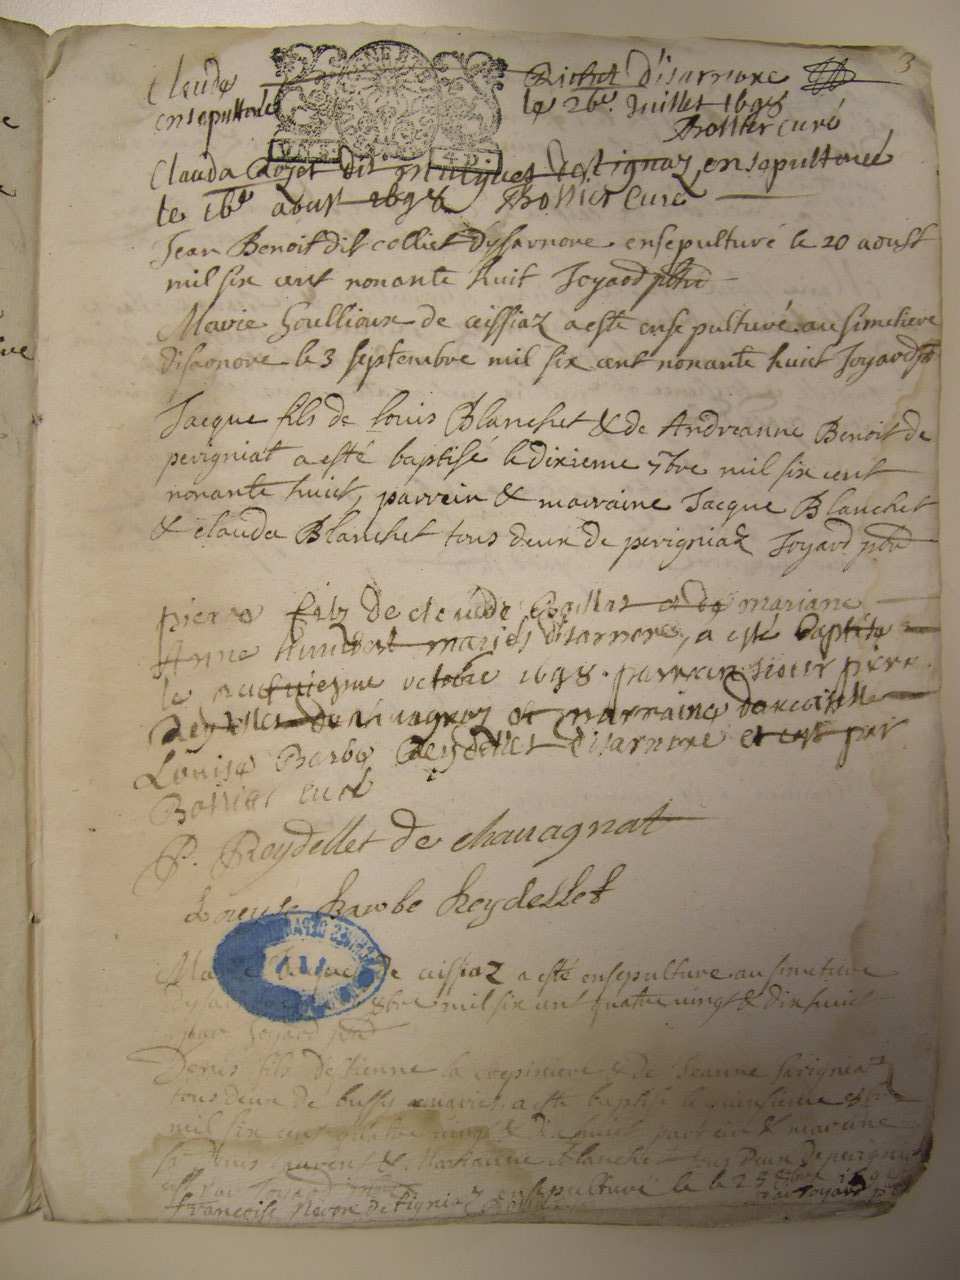 3
Claude Richet disarnore
ensepulturé le 26e Juillet 1698
Bollier curé
UN S. 4 D.
Clauda Rozet dit de tignaz, ensepulturée
le 16e aoust 1698 Bollier Curé
Jean Benoit dit colliet dysarnore ensepulturé le 20 aoust
mil six cent nonante huit Joyard ptre
Marie Goullioux de ceissiaz a esté ensepulturé au simetiere
disarnore le 3 septembre mil six cent nonante huit Joyard ptre
Jacque fils de Louis Blanchet & de Andreanne Benoit de
perigniat a esté baptisé le dixieme 7bre mil six cent
nonante huict, parrein & marraine Jacque Blanchet
& clauda Blanchet tous deux de perigniaz Joyard ptre
pierre filz de claude et de mariane
Anne humbert mariés disarnore, a esté baptisé
le neufviesme octobre 1698. parrein sieur pierre
Reydellet de et marraine damoiselle
Louise Barbe Reydellet disarnore et par
Bollier curé
P. Reydellet de chavagnat
Louise barbe Reydellet
de ceissiaz a esté ensepulturé au simetiere
8bre mil six cent quatre vingt & dix huit
par Joyard ptre
Denis fils detienne la & de Jeanne
tous deux de mariés a esté baptisé le 8bre
mil six cent quatre vingt & dix huit parrein & maraine
Denis & Marianne Blanchet tous deux de perigniat
par Joyard ptre
francoise de tigniaz ensepulturé le 25 8bre 1698
par Joyard ptre